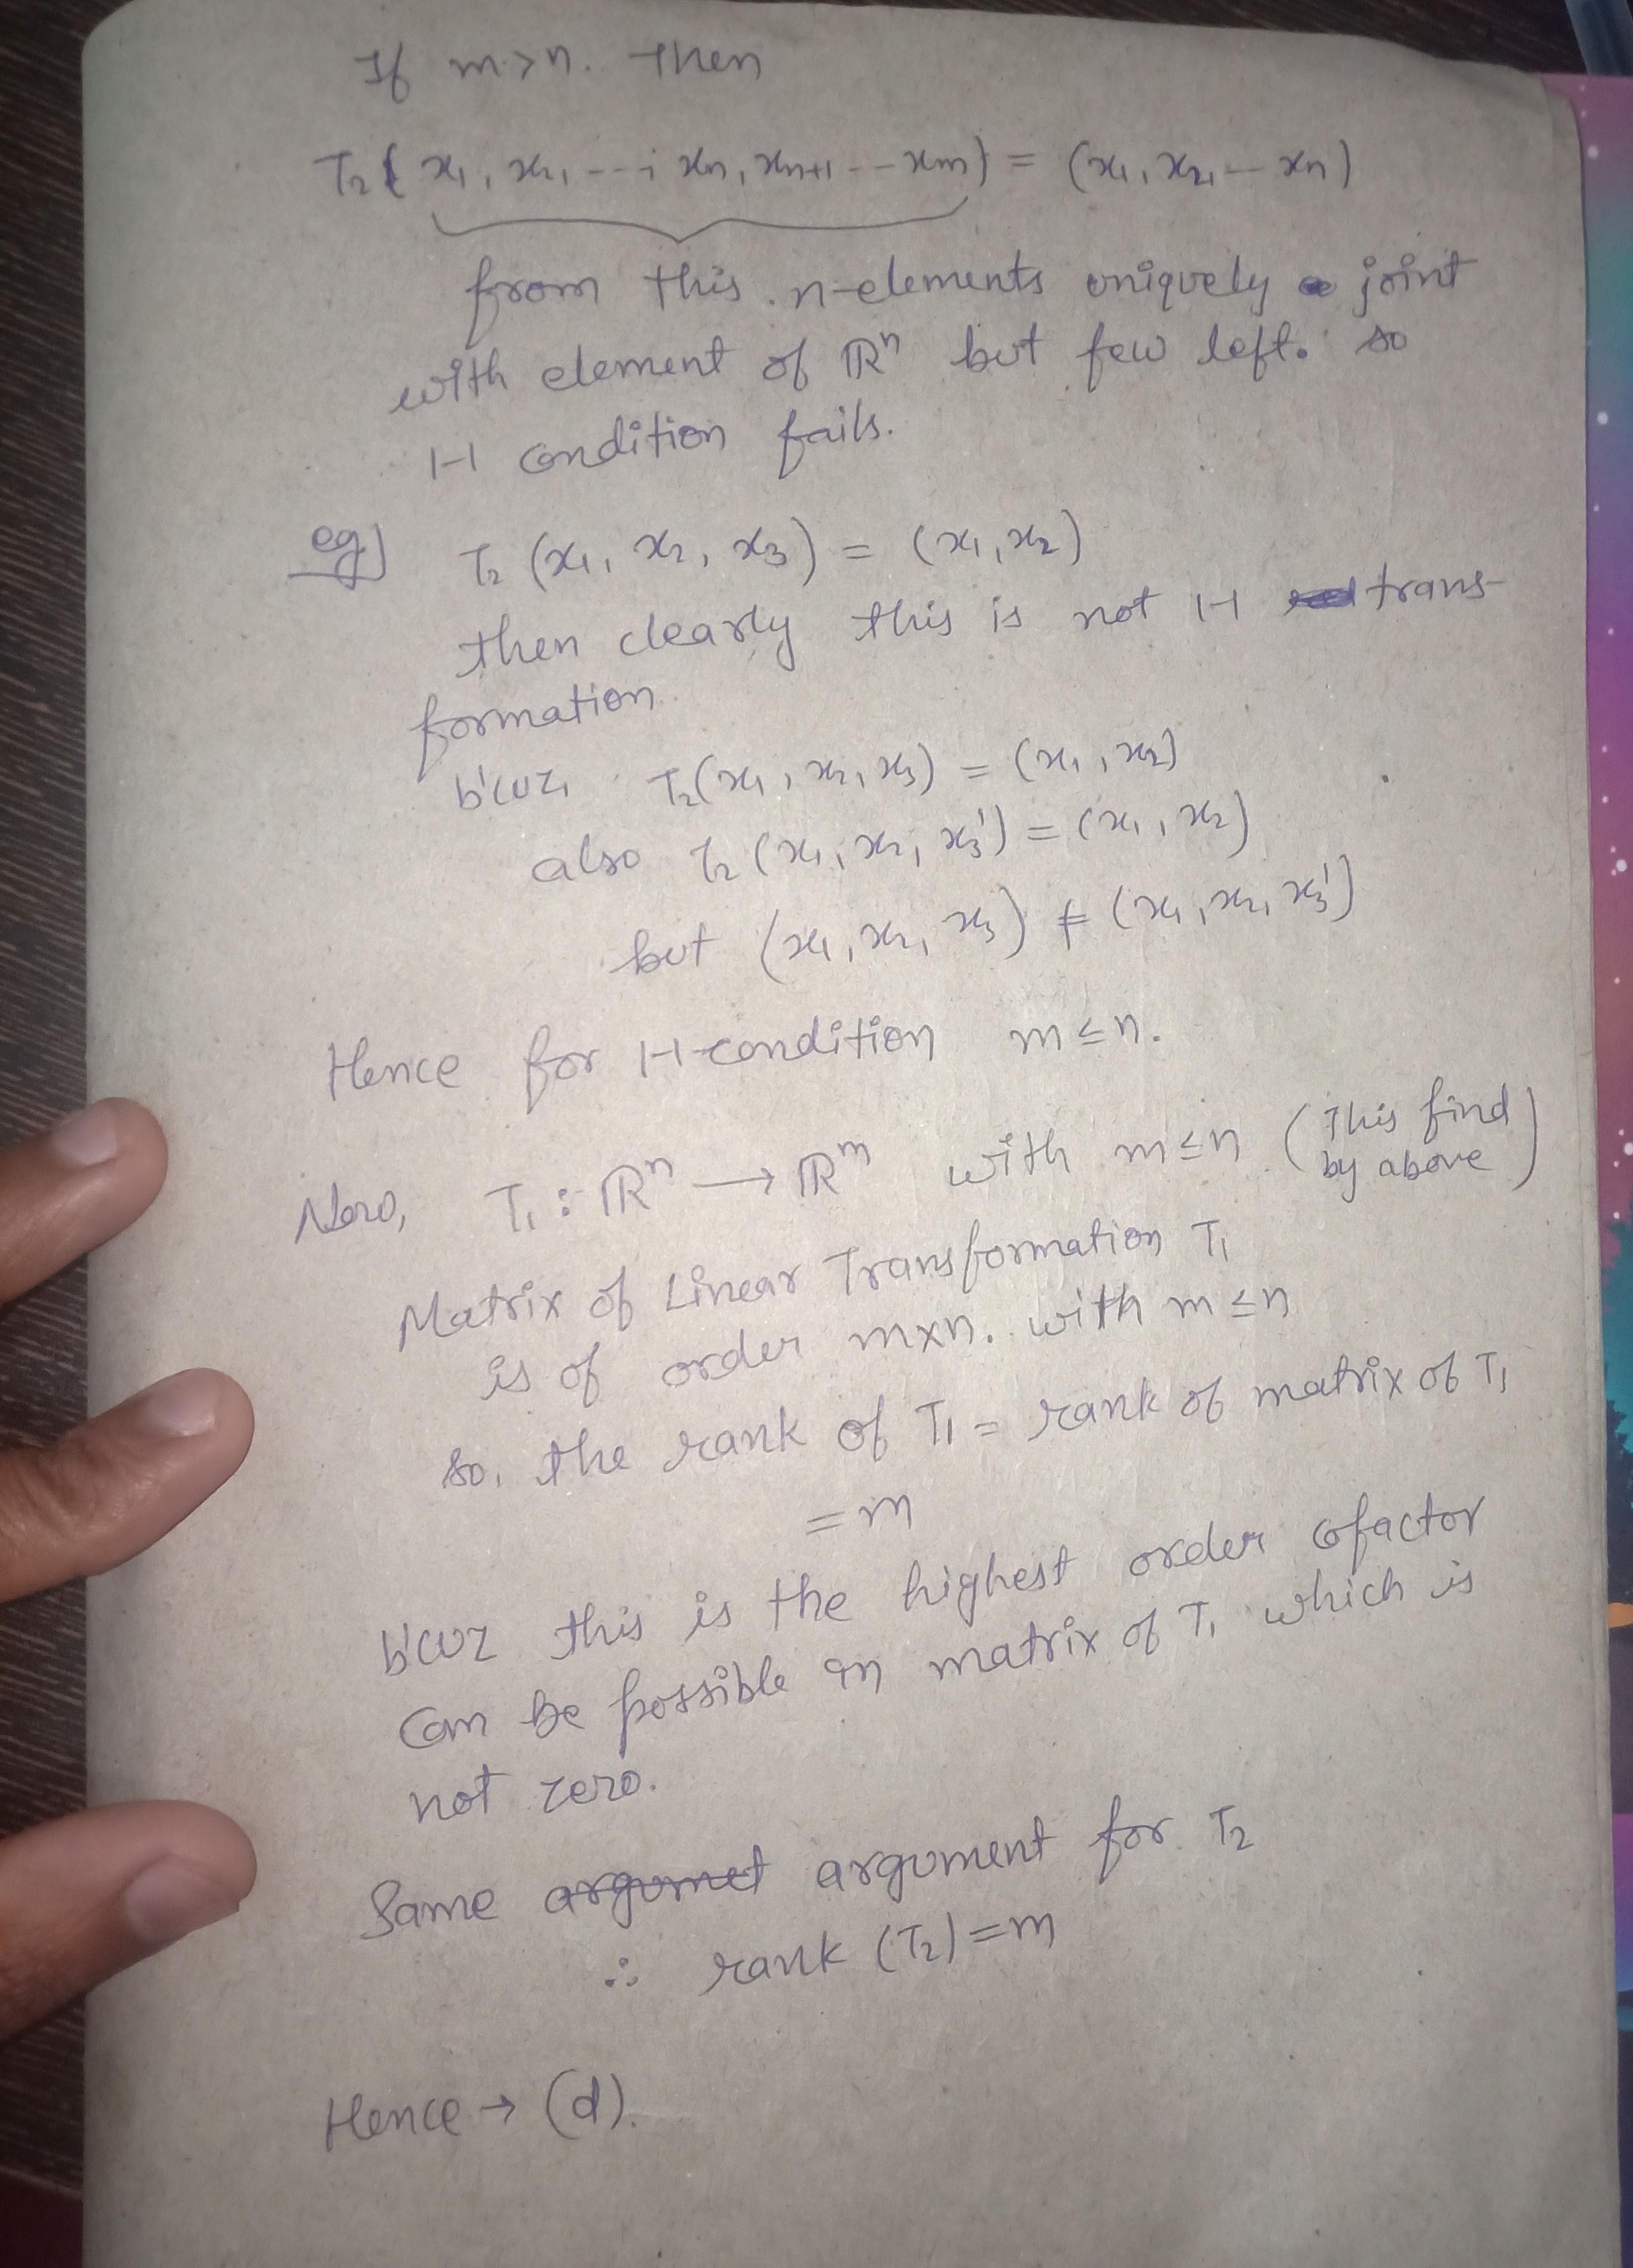 If m>n. Then
T₂( x₁, x₂, --; xn, xn+1 -- xm) = (x₁, x₂, -- xn)
from this. n-elements uniquely joint
with element of ℝⁿ but few left. so
1-1 condition fails.
eg) T₂ (x₁, x₂, x₃) = (x₁, x₂)
then clearly this is not 1-1 trans-
formation.
b'cuz, T₂(x₁, x₂, x₃) = (x₁, x₂)
also T₂ (x₁, x₂, x₃') = (x₁, x₂)
but (x₁, x₂, x₃) ≠ (x₁, x₂, x₃')
Hence for 1-1 condition m≤n.
Now, T₁ : ℝⁿ → ℝᵐ with m≤n. (This find
by above)
Matrix of Linear Transformation T₁
is of order m×n. with m≤n
so, the rank of T₁ = rank of matrix of T₁
= m
b'cuz this is the highest order cofactor
can be possible in matrix of T₁ which is
not zero.
Same argumet argument for T₂
∴ rank (T₂) = m
Hence → (d).